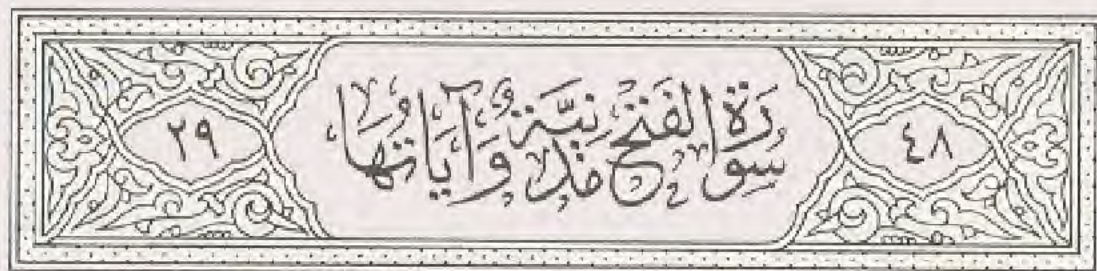 ٤٨
سُورَةُ الْفَتْحِ مَدَنِيَّةٌ وَآيَاتُهَا
٢٩